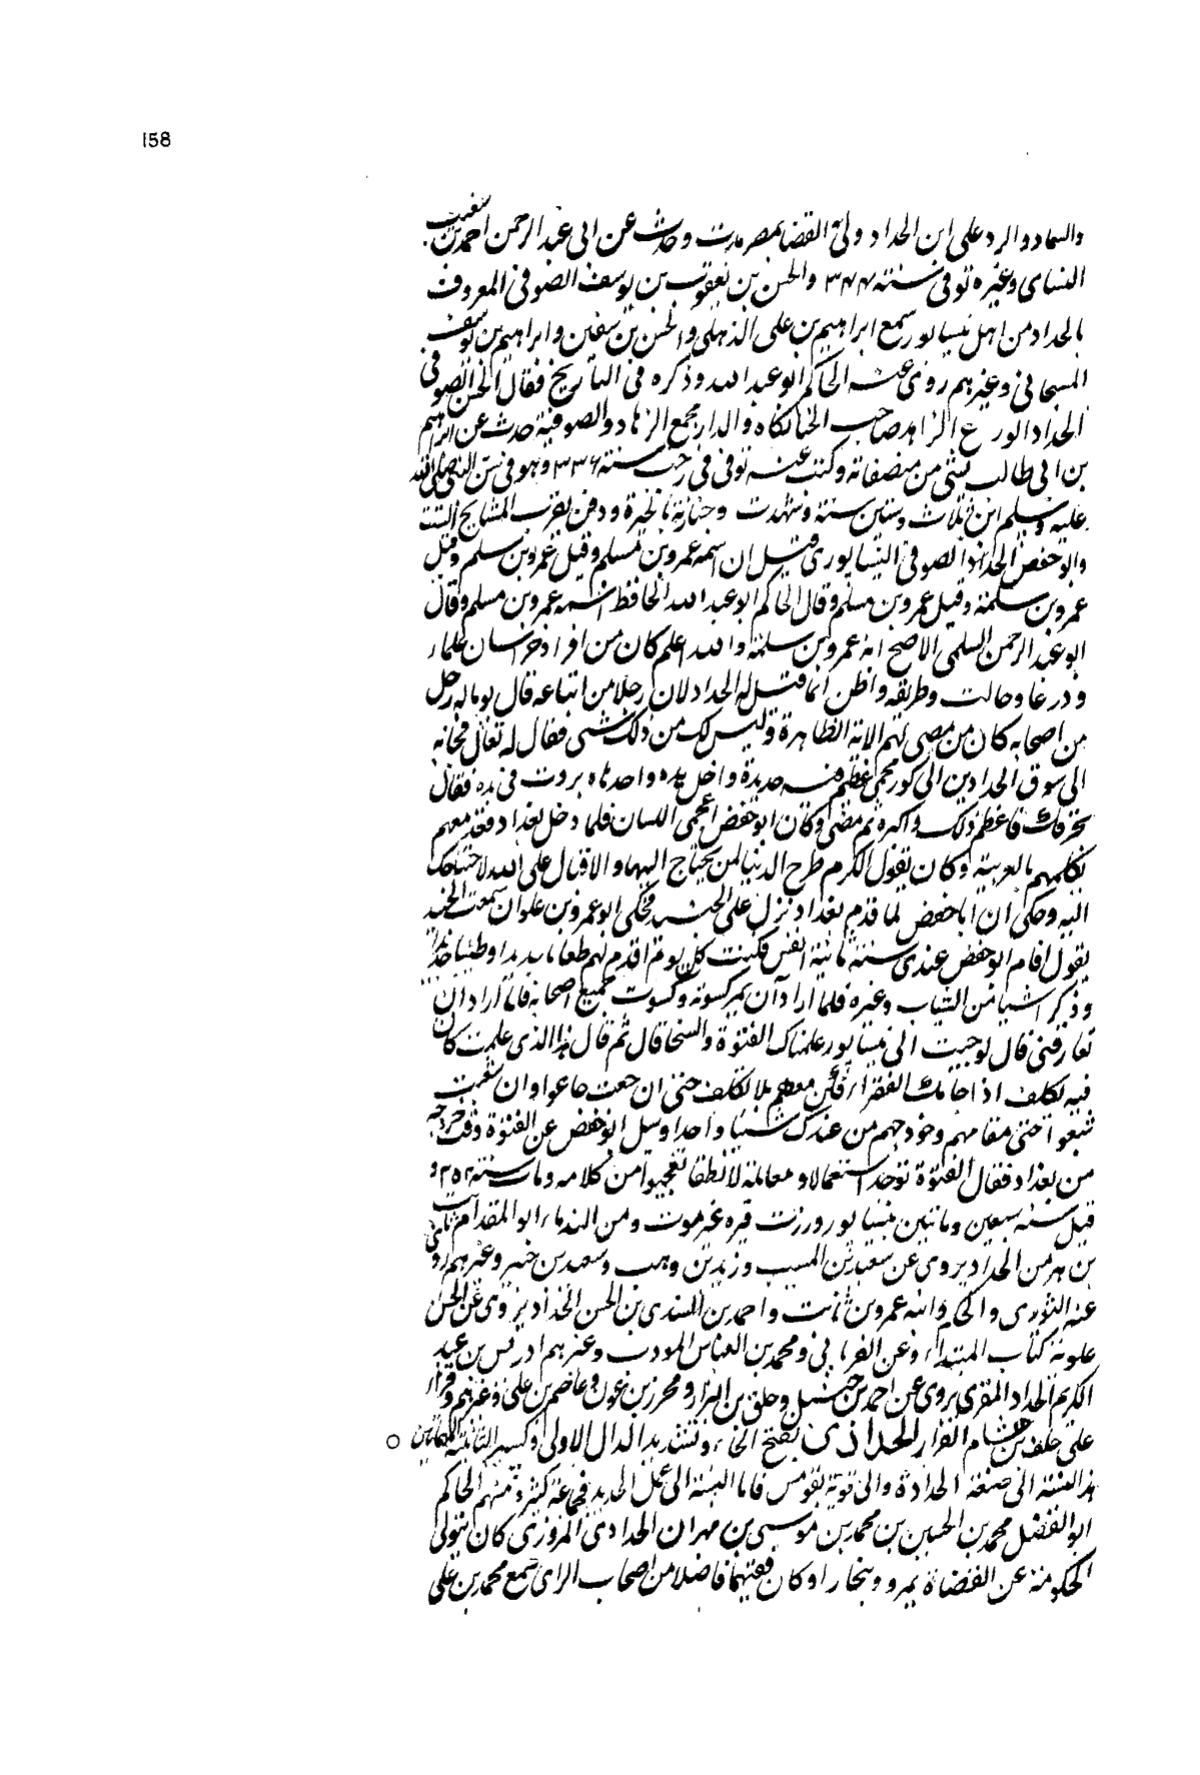 158
والرد على ابن الحداد ولى القضا بمصر مدت وحدث عن ابى عبد الرحمن احمد بن شعيب
النساى وغيره توفى سنته ٣٤٤ والحسن بن يعقوب بن يوسف الصوفى المعروف
بالحداد من اهل نيسابور سمع ابراهيم بن على الذهلى والحسن بن سفين وابراهيم بن يوسف
وغيرهم روى عنه الحاكم ابو عبد الله وذكره فى التاريخ فقال الحسن الصوفى
الحداد الورع الزاهد صاحب الخانكاه والدار مجمع الزهاد والصوفية حدث عن ابراهيم
بن ابى طالب بشى من مصنفاته وكتبت عنه توفى فى رجب سنته ٣٣٦ وهو فى سن النبى صلى الله
عليه وسلم ابن ثلاث وستين سنة وشهدت جنازته بالحيرة ودفن بقرب المشايخ
وابو حفص الحداد الصوفى النيسابورى قيل ان اسمه عمرو بن مسلم وقيل عمرو بن سلم وقيل
عمرو بن سلمة وقيل عمرو بن مسلم وقال الحاكم ابو عبد الله الحافظ اسمه عمرو بن مسلم وقال
ابو عبد الرحمن السلمى الاصح انه عمرو بن سلمة والله اعلم كان من افراد خراسان علما
وورعا وحالت وطريقه واظن انما قيل له الحداد لان رجلا من اتباعه قال يوما له رجل
من اصحابه كان من مضى لهم الاية الظاهرة وليس لك من ذلك شى فقال له تعال فجا به
الى سوق الحدادين الى كور محمى عظيم فيه حديدة واخل يده واحدها بروت فى يده فقال
يجزيك فاعظم ذلك واكبره ثم مضى وكان ابو حفص اعجمى اللسان فلما دخل بغداد قعد معهم
تكلمهم بالعربية وكان يقول الكرم طرح الدنيا لمن يحتاج اليها والاقبال على الله لاحتياجك
اليه وحكى ان ابا حفص لما قدم بغداد نزل على الجنيد فحكى ابو عمرو بن علوان سمعت الجنيد
يقول اقام ابو حفص عندى سنة ثمانية انفس فكنت كل يوم اقدم لهم طعاما جديدا وطيبا جديدا
وذكر اشيا من الثياب وغيره فلما اراد ان يمر كسوته وكسوت جميع اصحابه فلما اراد ان
يفارقنى قال لو جيت الى نيسابور علمناك الفتوة والسخا قال ثم قال هذا الذى علمت كان
فيه تكلف اذا جاءك الفقراء فكن معهم بلا تكلف حتى ان جعت جاعوا وان شبعت
شبعوا حتى مقامهم وخروجهم من عندك شيئا واحدا وسل ابو حفص عن الفتوة وقت خروجه
من بغداد فقال الفتوة توخذ استعمالا ومعاملة لا نطقا تعجبوا من كلامه ومات سنته ٢٥٢ و
قيل سنه سبعين وماتين بنيسابور وزرت قبره غير موت ومن القدماء ابو المقدام ثابت
بن هرمز الحداد يروى عن سعيد بن المسيب وزيد بن وهب وسعيد بن جبير وغيرهم روى
عنه الثورى والحكم وابنه عمرو بن ثابت واحمد بن السندى بن الحسن الحداد يروى عن الحسن
علويه كتاب المبتداء وعن الفريابى ومحمد بن العباس المودب وغيرهم ادريس بن عبد
الكريم الحداد المقرى يروى عن احمد بن حنبل وخلف بن البزار ومحرز بن عون وعاصم بن على وغيرهم وقرا
على خلف بن هشام القزاز الحدادى بفتح الحاء وتشديد الدال الاولى وكسر الثانية المهملتين ○
هذه النسبة الى صنعة الحدادة والى قرية بقومس فاما النسبة الى عمل الحديد فجماعة كثيرة منهم الحاكم
ابو الفضل محمد بن الحسين بن محمد بن موسى بن مهران الحدادى المروزى كان يتولى
الحكومة عن القضاة بمرو وبخارا وكان فقيها فاضلا من اصحاب الراى سمع محمد بن على